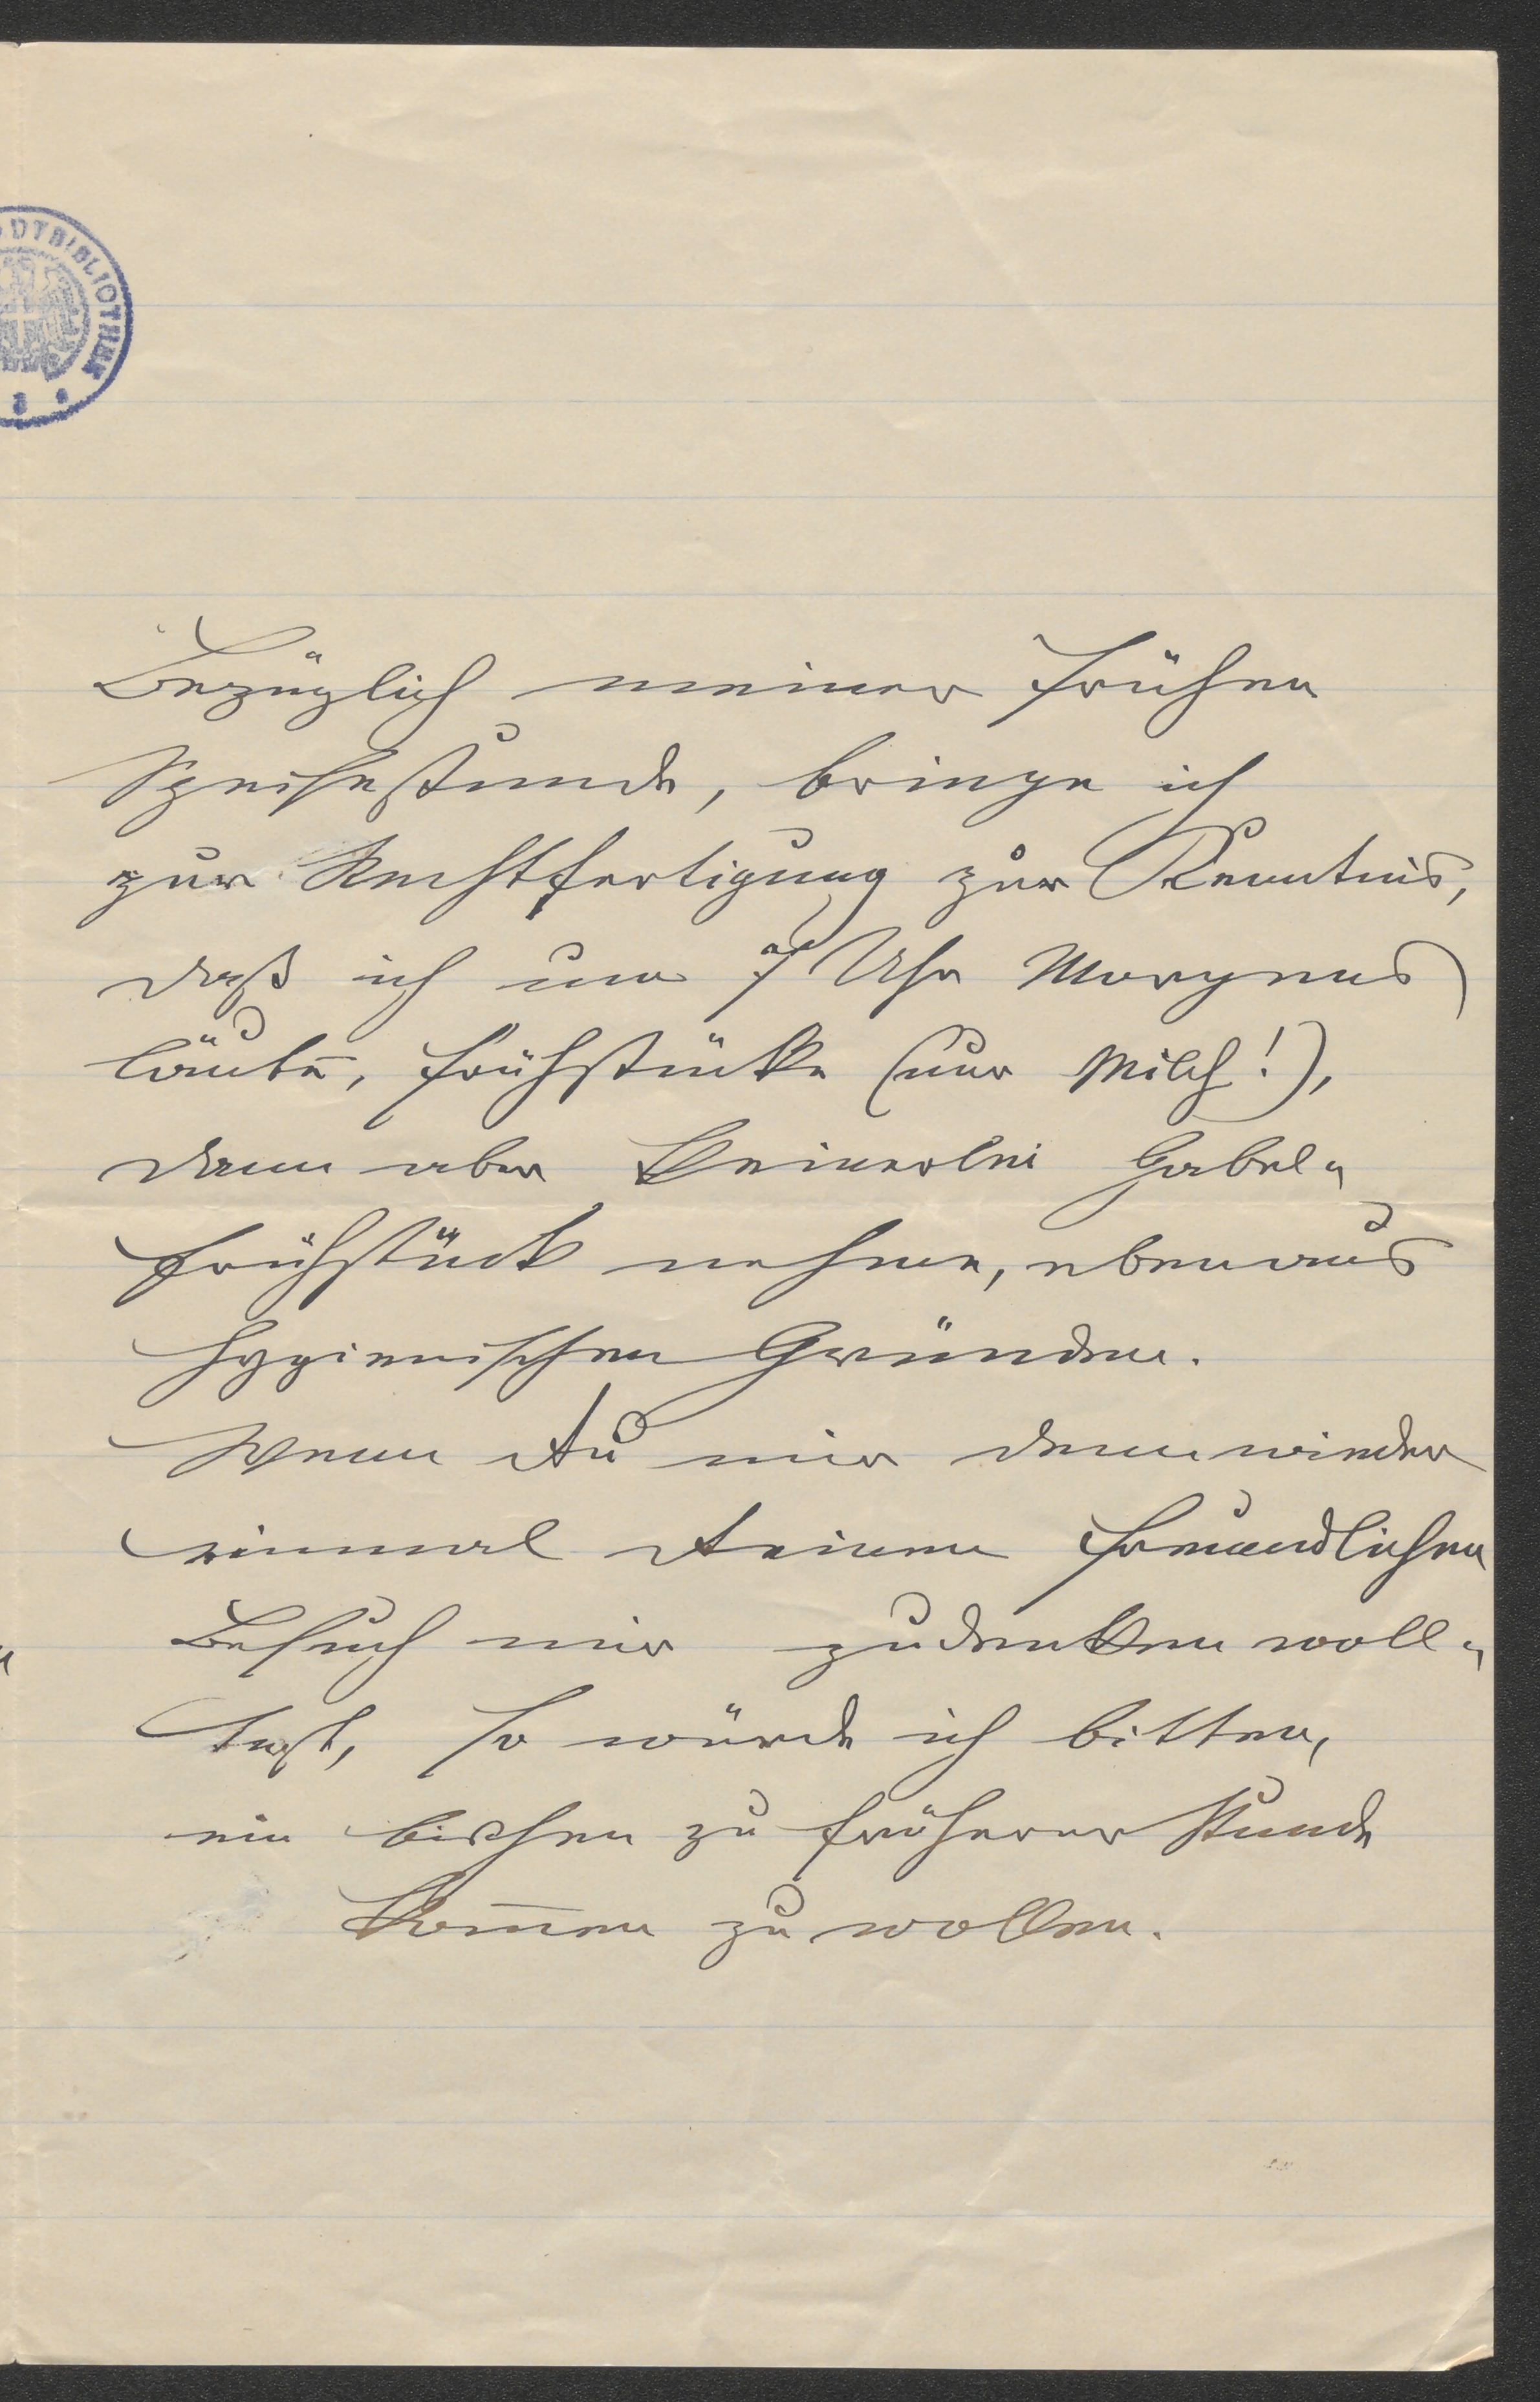 DTBIBLIOTHEK
Bezüglich meiner frühen
Speisestunde, bringe ich
zur Rechtfertigung zur Kenntnis,
daß ich um 7 Uhr Morgens
frühstücke (nur Milch!),
dann aber keinerlei Gabel„
frühstück nehme, eben aus
hygienischen Gründen.
Wenn Du mir denn wieder
einmal Deinen freundlichen
Besuch mir zudenken woll„
test, so würde ich bitten,
ein bischen zu früherer Stunde
kom̄en zu wollen.